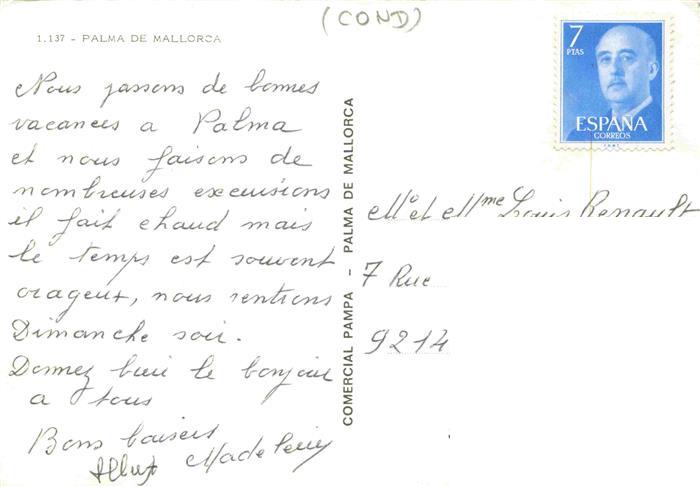 (COND)
1.137 - PALMA DE MALLORCA
7
PTAS
ESPAÑA
CORREOS
Nous passons de bonnes
vacances a Palma
et nous faisons de
nombreuses excursions
il fait chaud mais
le temps est souvent
orageux, nous rentrons
Dimanche soir.
Donnez bien le bonjour
a tous
Bons baisers
COMERCIAL PAMPA - PALMA DE MALLORCA
Mr et Mme Louis Renault
7 Rue
9214